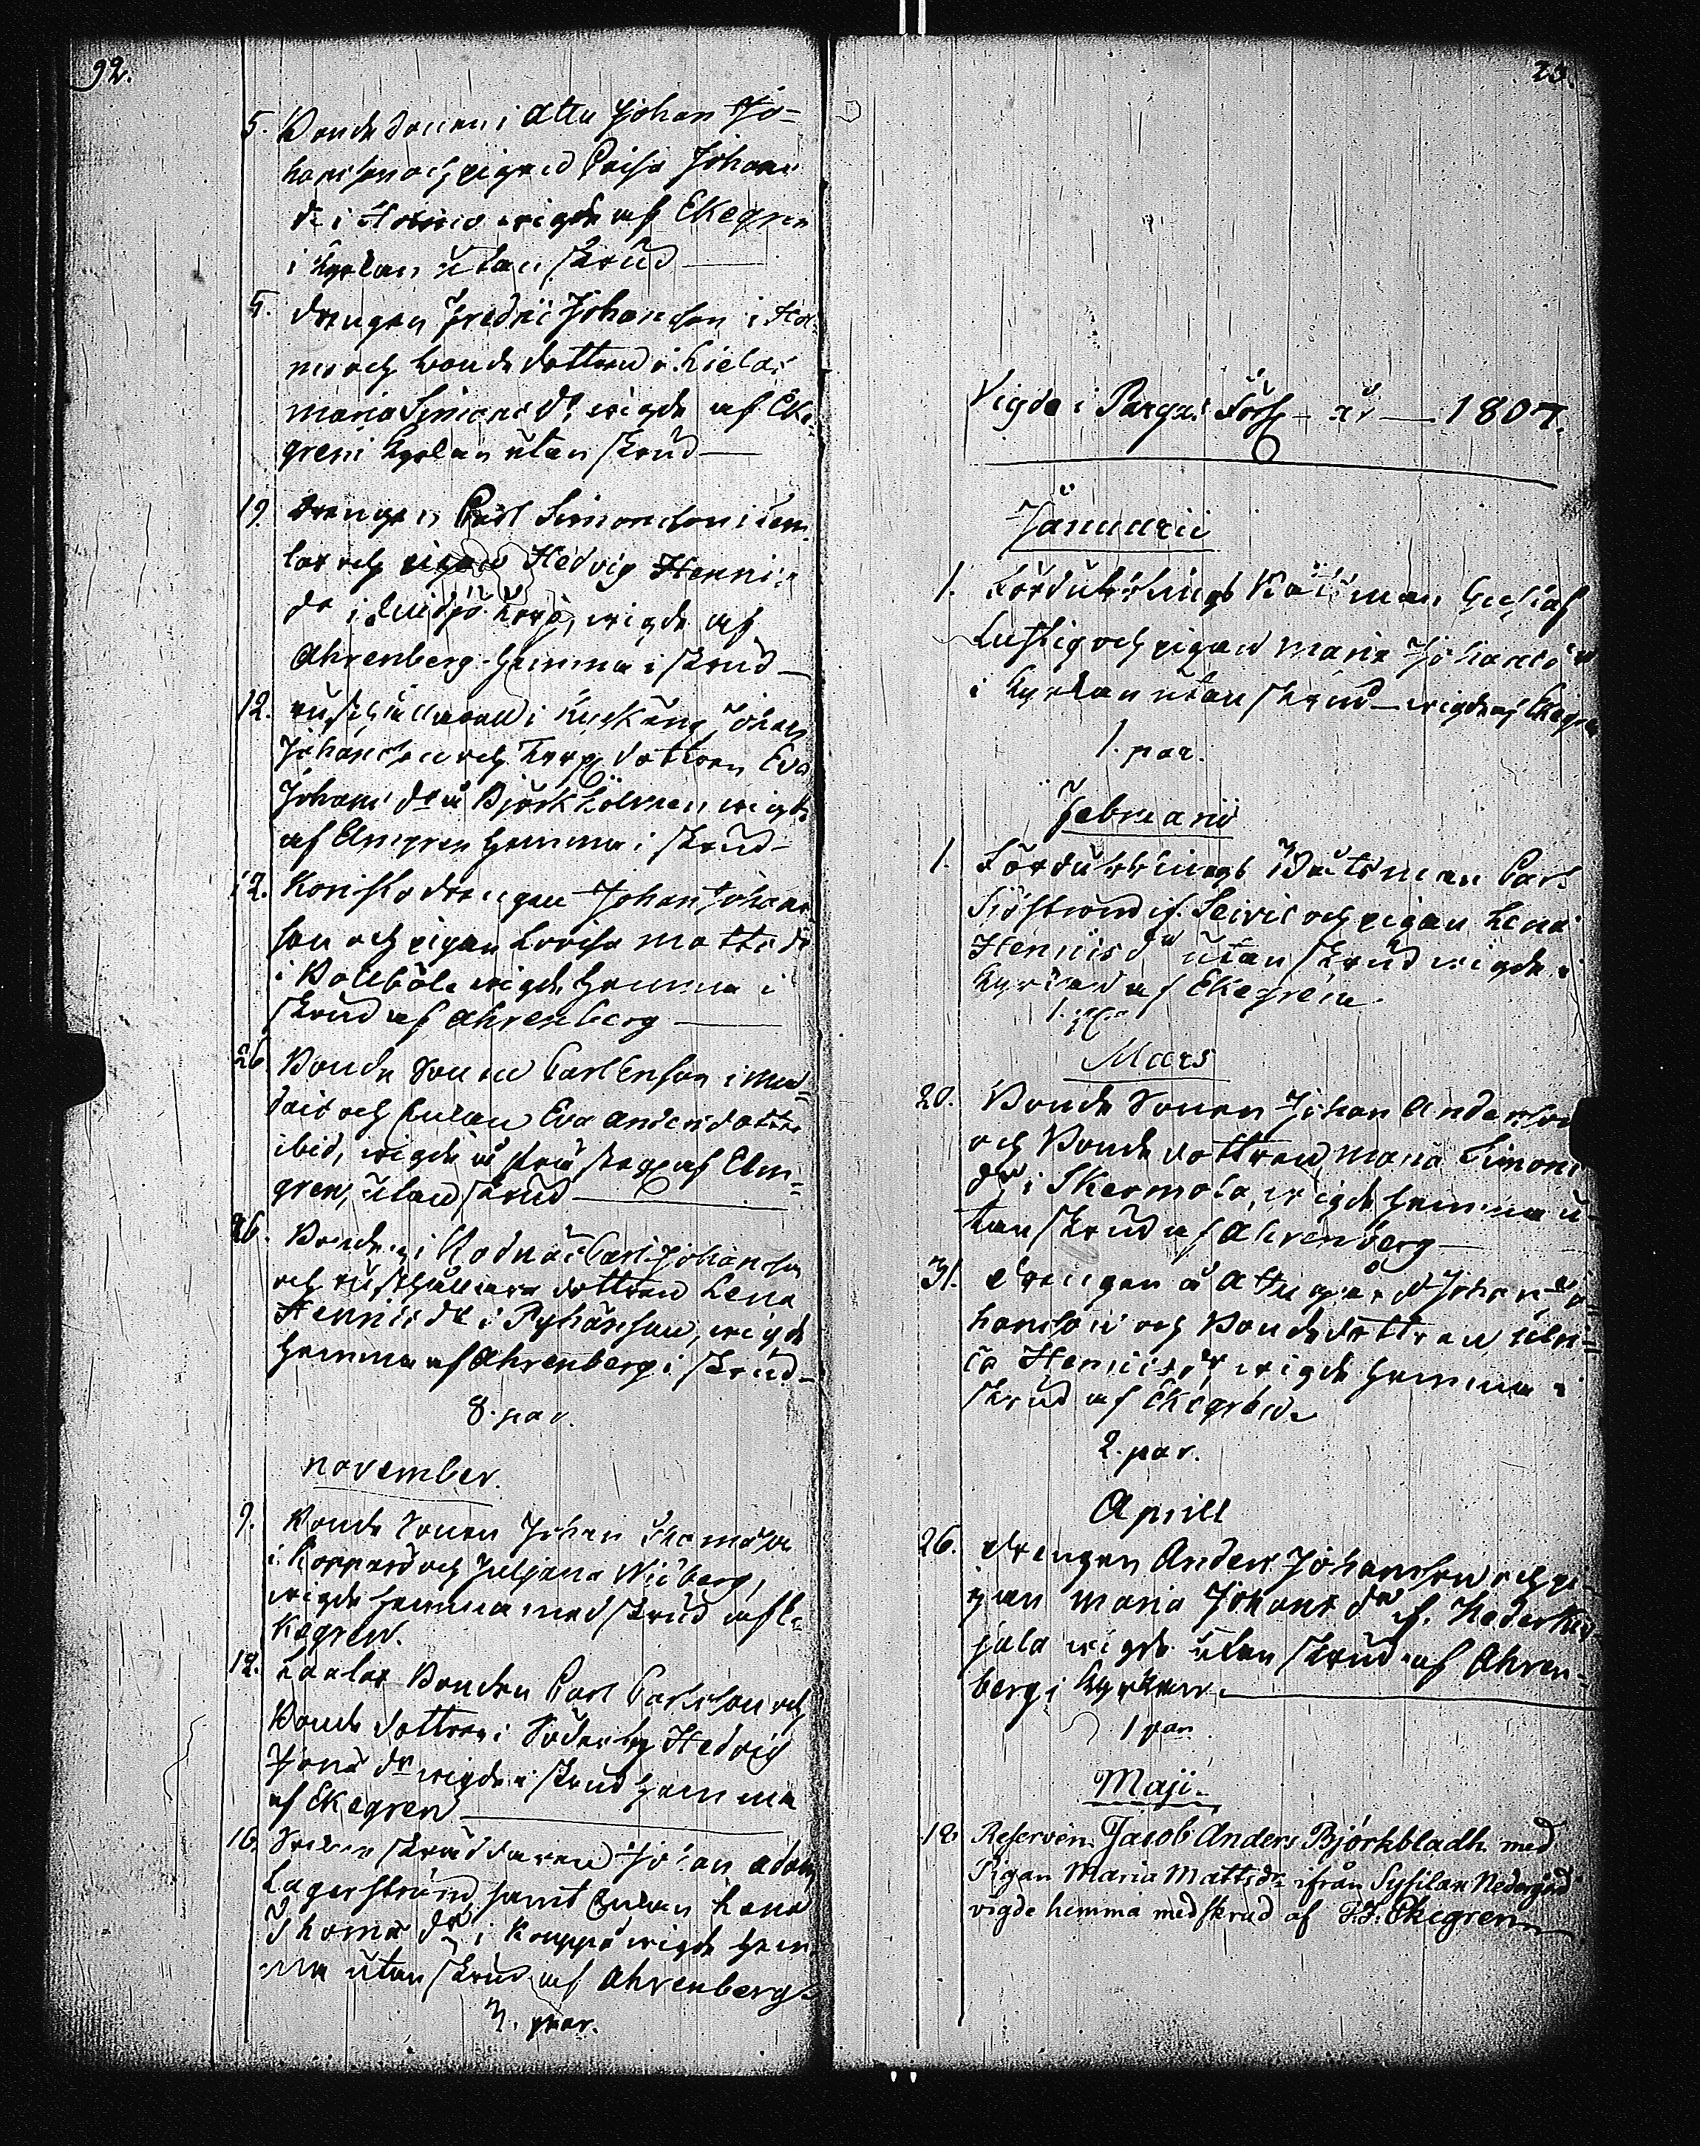 92.
5. Bonde Sonen i Attu Johan Jo=
hansson och pigan Caisa Johans
dr i wigde af Ekegren
i kyrkan utan skrud
5. drengen Fredric Johansson i Hol
mo och bonde dottren i Kielax
Maria Simons dr wigde af Eke=
gren i kyrkan utan skrud
19. drengen Carl Simonsson i Sim
lax och pigan Hedvig Henrics
dr i wigde af
Ahrenberg hemma i skrud
12. rusthållaren i Johan
Johansson och Torp dottren Eva
Johans dr i Björkholmen wigde
af Elmgren hemma i skrud
12. drengen Johan Johans
son och pigan Lovisa Matts dr
i Bollböle wigde hemma i
skrud af Ahrenberg
26. Bonde Sonen Carl Ersson i Mu=
dais och Enkan Eva Anders dotter
ibid, wigde i prästeg. af Elm=
gren, utan skrud
26. Bonden i Rodnäs Carl Johansson
och rusthållare dottren Lena
Henrics dr i Pyhänsuu, wigde
hemma af Ahrenberg i skrud
8. par.
November.
9. Bonde Sonen Johan Thomasson
i Korpas och Juljana Wiberg,
wigde hemma med skrud af E=
kegren.
12. Laxlax Bonden Carl Carlsson och
Bonde dottren i Söderby Hedvig
Jons dr wigde i skrud hemma
af Ekegren
16. Socken Skräddaren Johan Adam
Lagerström samt Enkan Lena
Thomas dr i Kouppo wigde hem
ma utan skrud af Ahrenberg
3. par.
23.
Vigde i Pargas Förs. år 1807.
Januarii
1. Fördubblings Båtsman Gustaf
Lustig och pigan Maria Johans dr
i kyrkan utan skrud wigde af Ekegren
1. par.
Februarii
1. Fördubblings Båtsman Carl
Siöström if. och pigan Lena
Henrics dr utan skrud wigde i
kyrkan af Ekegren.
1. par
Mars
20. Bonde Sonen Johan Andersson
och Bonde dottren Maria Simons
dr i Skermola, wigde hemma u=
tan skrud af Ahrenberg
31. drengen å Attu gård Johan Jo=
hansson och Bonde dottren Ulri=
ca Henrics dr wigde hemma i
skrud af Ekegren
2. par.
Aprill
26. drengen Anders Johansson och pi=
gan Maria Johans dr if.
wigde utan skrud af Ahren=
berg i kyrkan.
1 par
Maji.
18. Reserven Jacob Anders Björkbladh med
Pigan Maria Mattsdr ifrån Sysilax Nedergård
vigde hemma med skrud af F.J. Ekegren